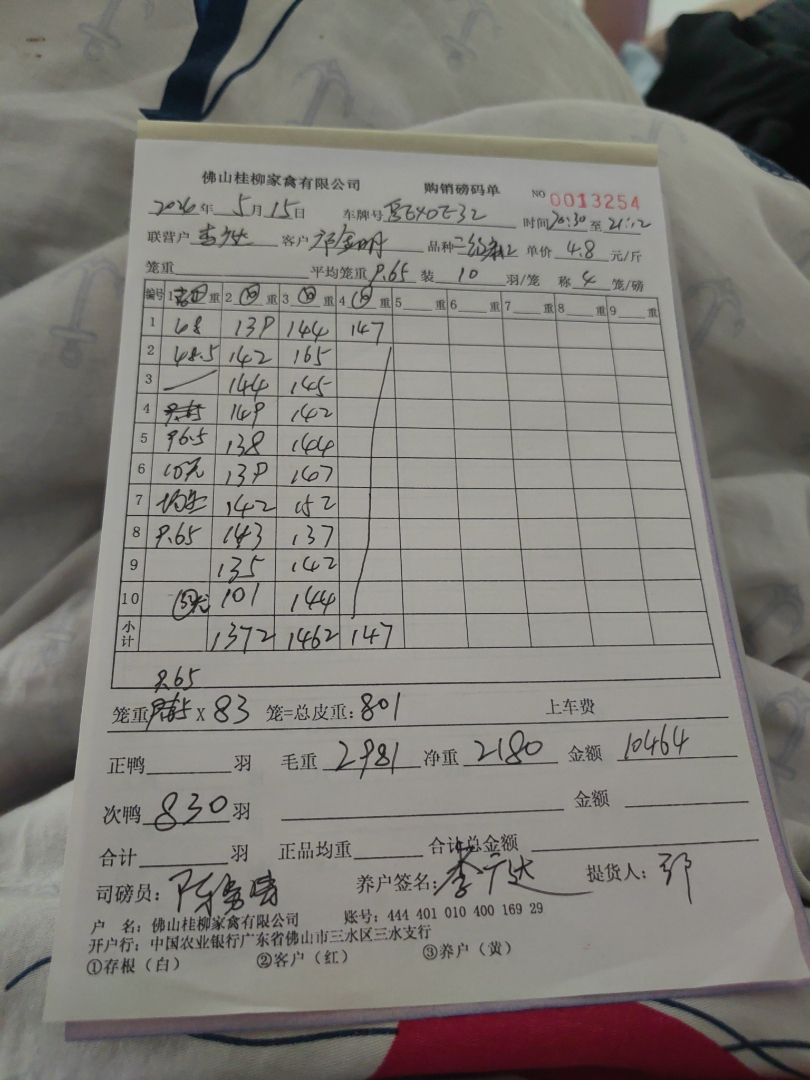 佛山桂柳家禽有限公司 购销磅码单 NO 0013254
2026年5月15日 车牌号 时间20:30至21:12
联营户 客户 品种 单价 4.8 元/斤
笼重 平均笼重 9.65 装 10 羽/笼 称 4 笼/磅
编号 1 重 2 重 3 重 4 重 5 重 6 重 7 重 8 重 9 重
1 48 139 144 147
2 48.5 142 165
3 144 145
4 149 142
5 96.5 138 144
6 10只 139 167
7 均重 142 152
8 9.65 143 137
9 135 142
10 101 144
小计 1372 1462 147
9.65
笼重 X 83 笼=总皮重: 801 上车费
正鸭 羽 毛重 2981 净重 2180 金额 10464
次鸭 830 羽 金额
合计 羽 正品均重 合计总金额
司磅员: 养户签名: 李广达 提货人: 邓
户 名: 佛山桂柳家禽有限公司 账号: 444 401 010 400 169 29
开户行: 中国农业银行广东省佛山市三水区三水支行
①存根（白） ②客户（红） ③养户（黄）